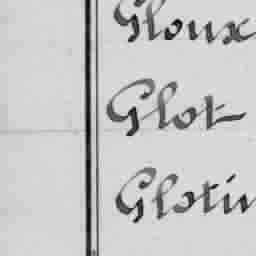 Gloux
Glot
Glotin